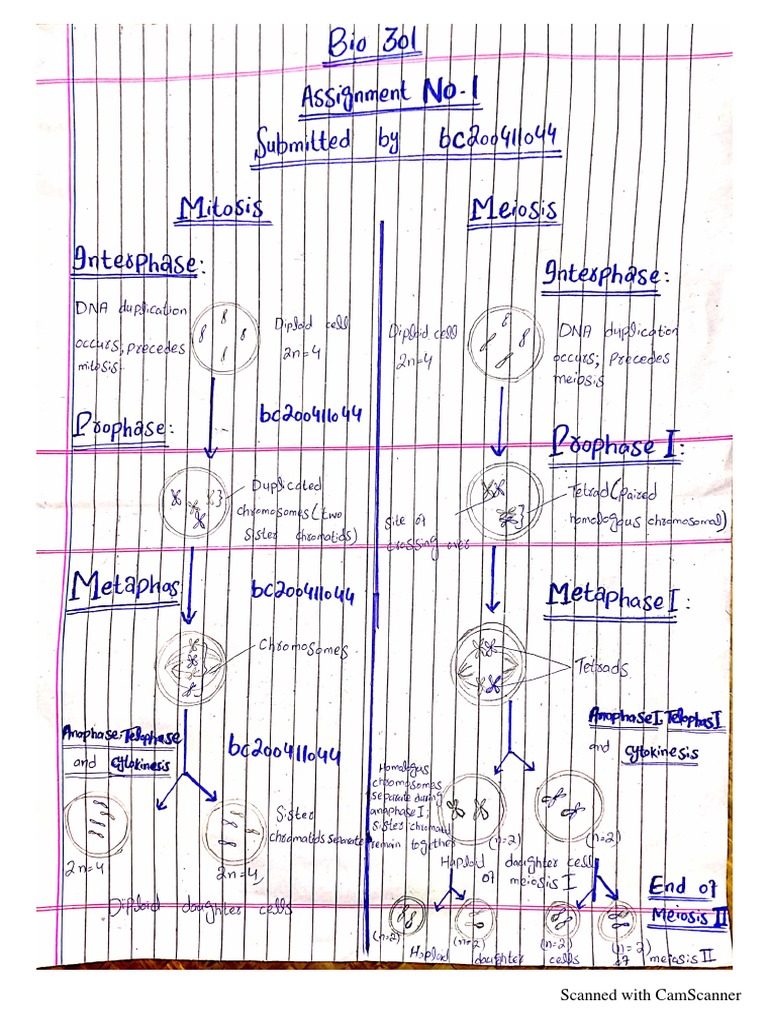 Bio 301
Assignment No.1
Submitted by bc200411044
Mitosis
Interphase:
DNA duplication
occurs; precedes
mitosis.
Diploid cell
2n=4
Prophase:
bc200411044
Duplicated
chromosomes (two
sister chromatids)
Metaphas
bc200411044
Chromosomes
Anaphase, Telophase
and Cytokinesis
bc200411044
Sister
chromatids separate
2n=4
2n=4
Diploid daughter cells
Meiosis
Interphase:
Diploid cell
2n=4
DNA duplication
occurs; precedes
meiosis
Prophase I:
Site of
crossing over
Tetrad (paired
homologous chromosomal)
Metaphase I:
Tetrads
Anaphase I, Telophas I
and Cytokinesis
Homologus
chromosomes
separate during
anaphase I;
sister chromatid
remain together
(n=2)
(n=2)
Haploid daughter cell
of meiosis I
End of
Meiosis II
(n=2)
(n=2)
(n=2)
(n=2)
Haploid daughter cells of meiasis II
Scanned with CamScanner